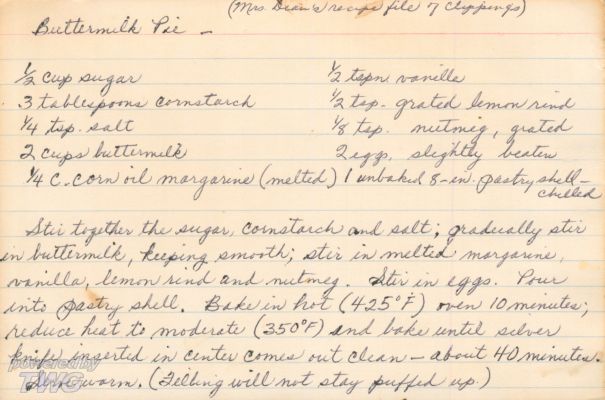 (Mrs. Dean's recipe file of clippings)
Buttermilk Pie —
1/2 cup sugar
1/2 tspn. vanilla
3 tablespoons cornstarch
1/2 tsp. grated lemon rind
1/4 tsp. salt
1/8 tsp. nutmeg, grated
2 cups buttermilk
2 eggs, slightly beaten
1/4 c. corn oil margarine (melted)
1 unbaked 8-in. pastry shell – chilled
Stir together the sugar, cornstarch and salt; gradually stir
in buttermilk, keeping smooth; stir in melted margarine,
vanilla, lemon rind and nutmeg. Stir in eggs. Pour
into pastry shell. Bake in hot (425°F) oven 10 minutes;
reduce heat to moderate (350°F) and bake until silver
knife inserted in center comes out clean — about 40 minutes.
warm. (Filling will not stay puffed up.)
powered by
TWG